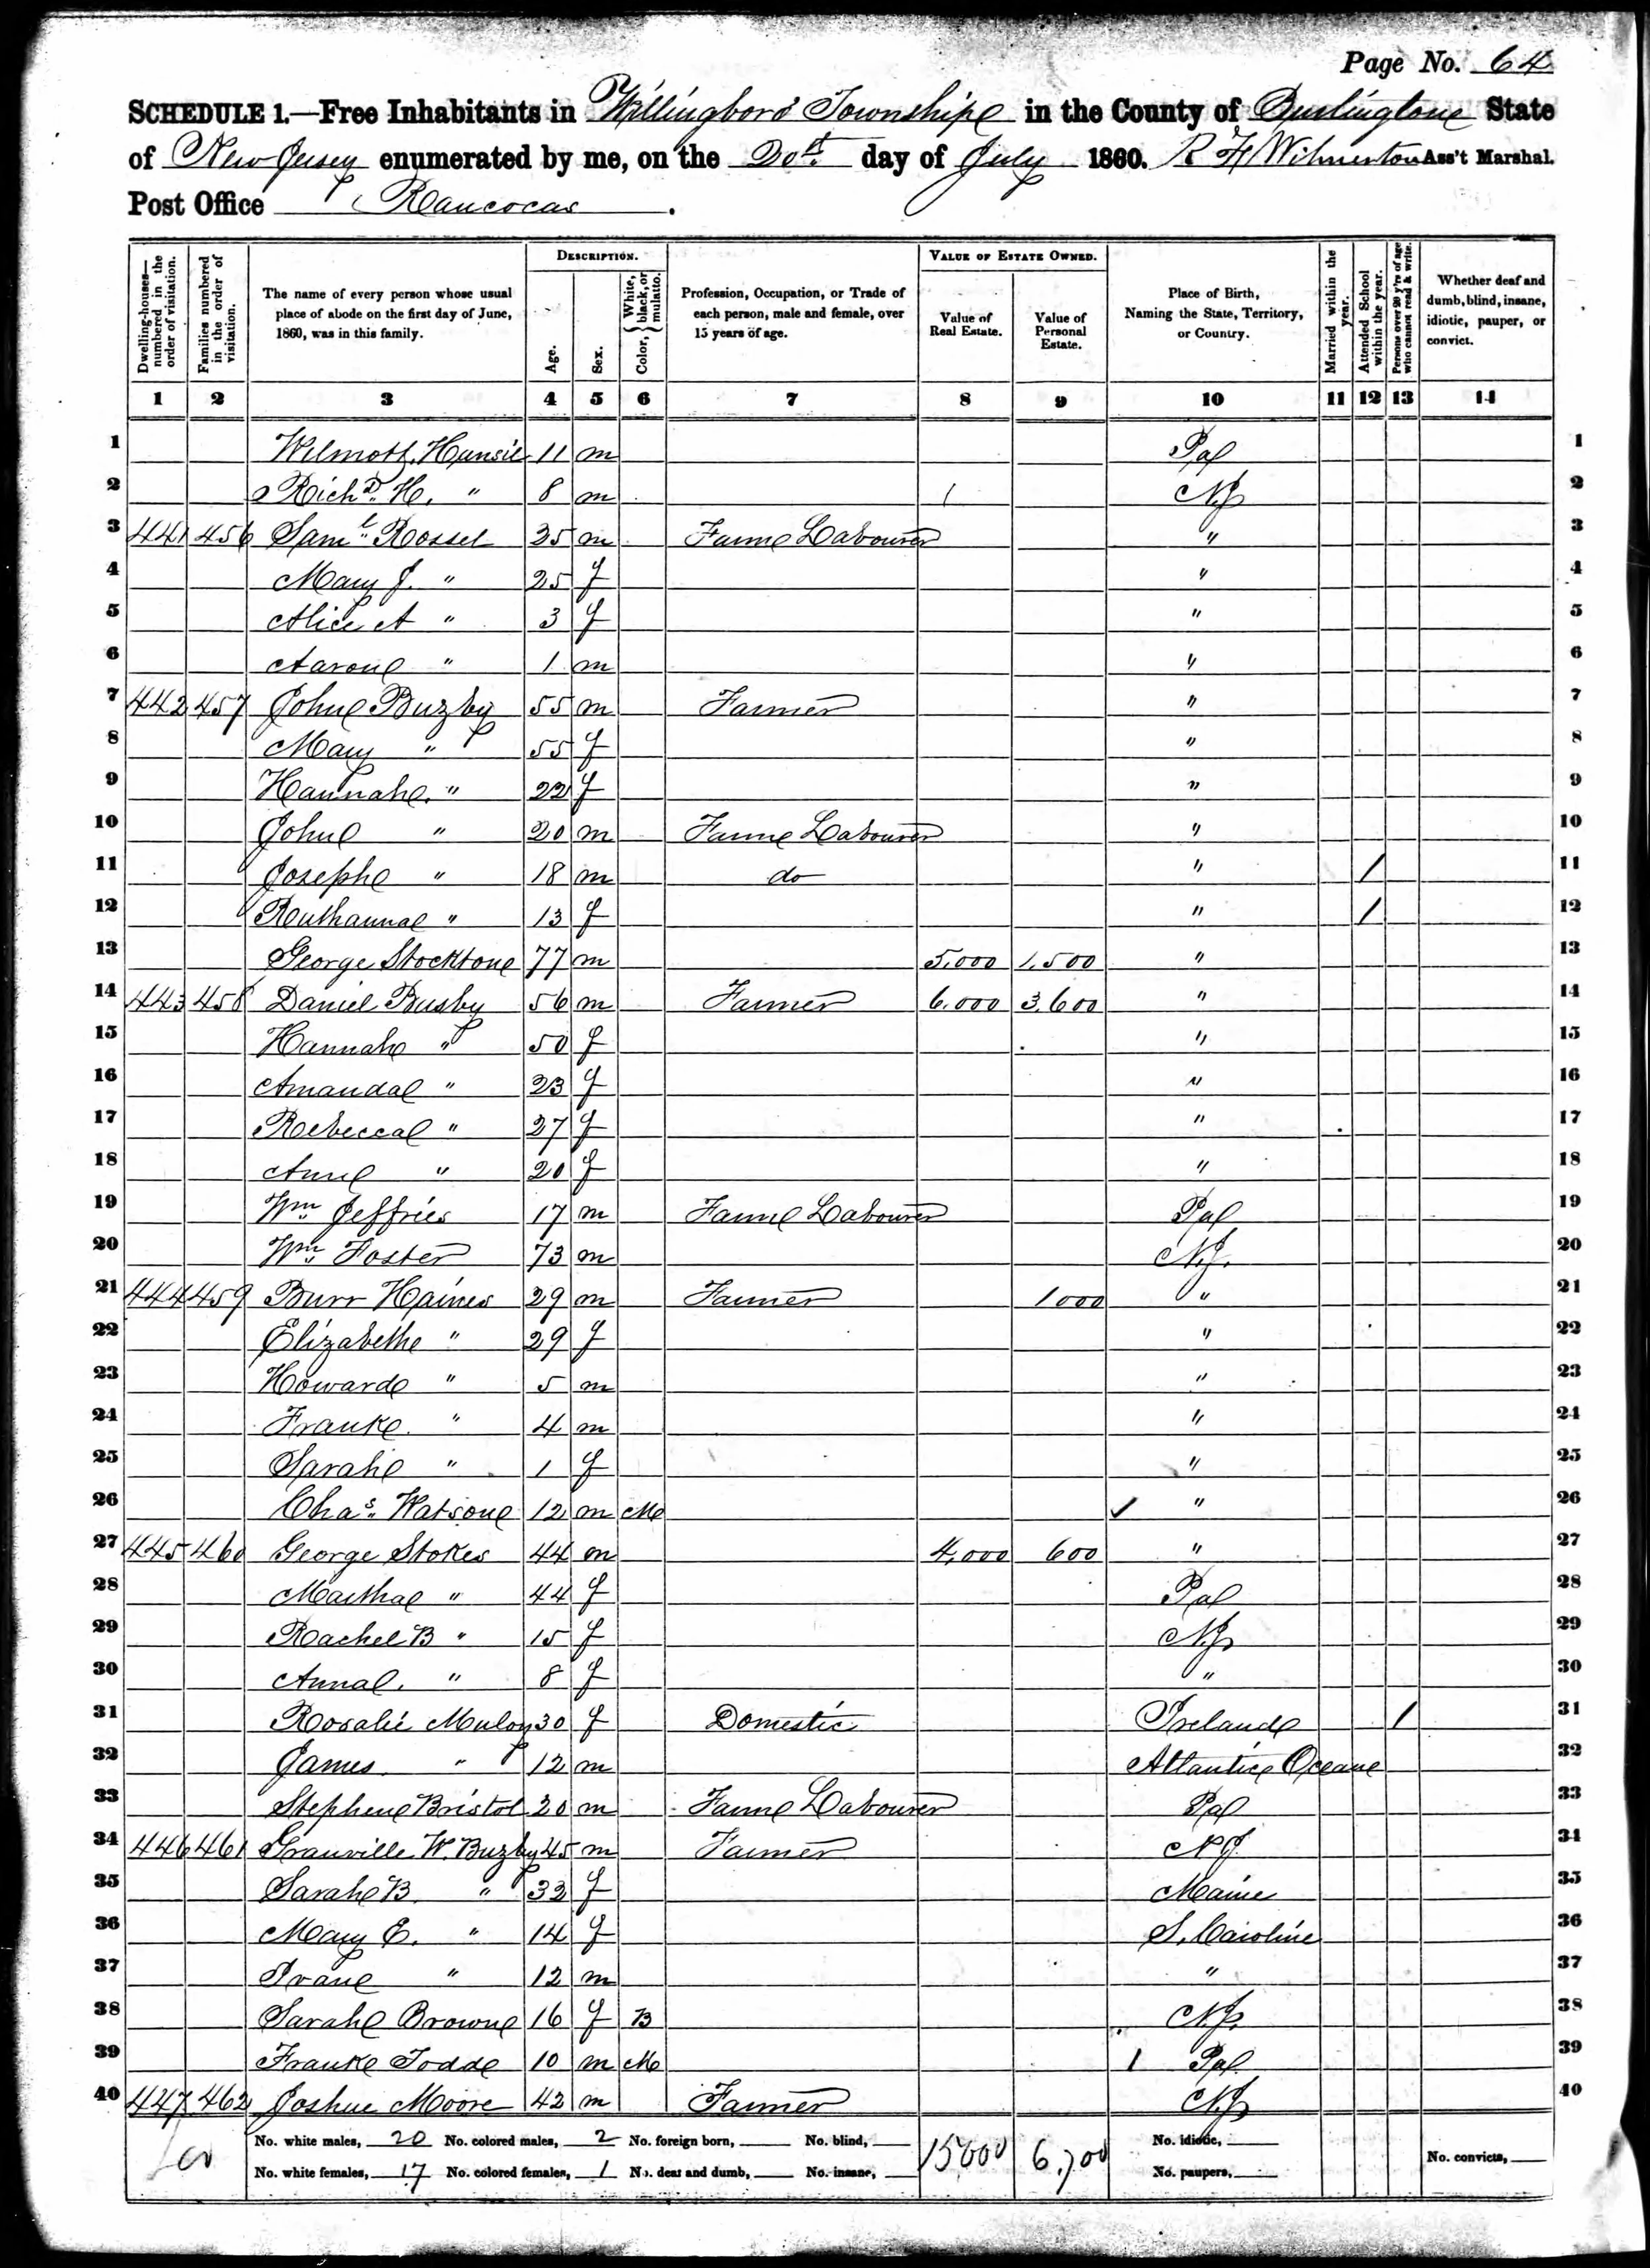 Page No. 64
SCHEDULE 1.—Free Inhabitants in Willingboro Township in the County of Burlington State
of New Jersey enumerated by me, on the 20th day of July 1860. R H Wilmerton Ass't Marshal.
Post Office Rancocas.
Dwelling-houses—numbered in the order of visitation.
Families numbered in the order of visitation.
The name of every person whose usual place of abode on the first day of June, 1860, was in this family.
DESCRIPTION.
Age.
Sex.
Color, { White, black, or mulatto.
Profession, Occupation, or Trade of each person, male and female, over 15 years of age.
VALUE OF ESTATE OWNED.
Value of Real Estate.
Value of Personal Estate.
Place of Birth, Naming the State, Territory, or Country.
Married within the year.
Attended School within the year.
Persons over 20 y'rs of age who cannot read & write.
Whether deaf and dumb, blind, insane, idiotic, pauper, or convict.
1 2 3 4 5 6 7 8 9 10 11 12 13 14
1 Wilmott 11 m Pa 1
2 Richd. H. " 8 m / NJ 2
3 441 456 Saml. Rossel 35 m Farm Labourer " 3
4 Mary J. " 25 f " 4
5 Alice A " 3 f " 5
6 Aaron " 1 m " 6
7 442 457 John Buzby 55 m Farmer " 7
8 Mary " 55 f " 8
9 Hannah " 22 f " 9
10 John " 20 m Farm Labourer " 10
11 Joseph " 18 m do " / 11
12 Ruthanna " 13 f " / 12
13 George Stockton 77 m 5,000 1,500 " 13
14 443 458 Daniel Busby 56 m Farmer 6.000 3.600 " 14
15 Hannah " 50 f " 15
16 Amanda " 23 f " 16
17 Rebecca " 27 f " 17
18 Ann " 20 f " 18
19 Wm Jeffries 17 m Farm Labourer Pa 19
20 Wm Foster 73 m N.J. 20
21 444 459 Burr Haines 29 m Farmer 1000 " 21
22 Elizabeth " 29 f " 22
23 Howard " 5 m " 23
24 Frank " 4 m " 24
25 Sarah " 1 f " 25
26 Chas. Watson 12 m M ✓ " 26
27 445 460 George Stokes 44 m 4,000 600 " 27
28 Martha " 44 f Pa 28
29 Rachel B " 15 f NJ 29
30 Anna " 8 f " 30
31 Rosalie Muloy 30 f Domestic Ireland / 31
32 James " 12 m Atlantic Ocean 32
33 Stephen Bristol 20 m Farm Labourer Pa 33
34 446 461 Granville W. Buzby 45 m Farmer NJ 34
35 Sarah B. " 33 f Maine 35
36 Mary E. " 14 f S. Caroline 36
37 " 12 m " 37
38 Sarah Brown 16 f B N.J. 38
39 Frank Todd 10 m M / Pa 39
40 447 462 Joshue Moore 42 m Farmer NJ 40
No. white males, 20 No. colored males, 2 No. foreign born, No. blind, 15000 6,700 No. idiotic,
No. white females, 17 No. colored females, 1 No. deaf and dumb, No. insane, No. paupers, No. convicts,